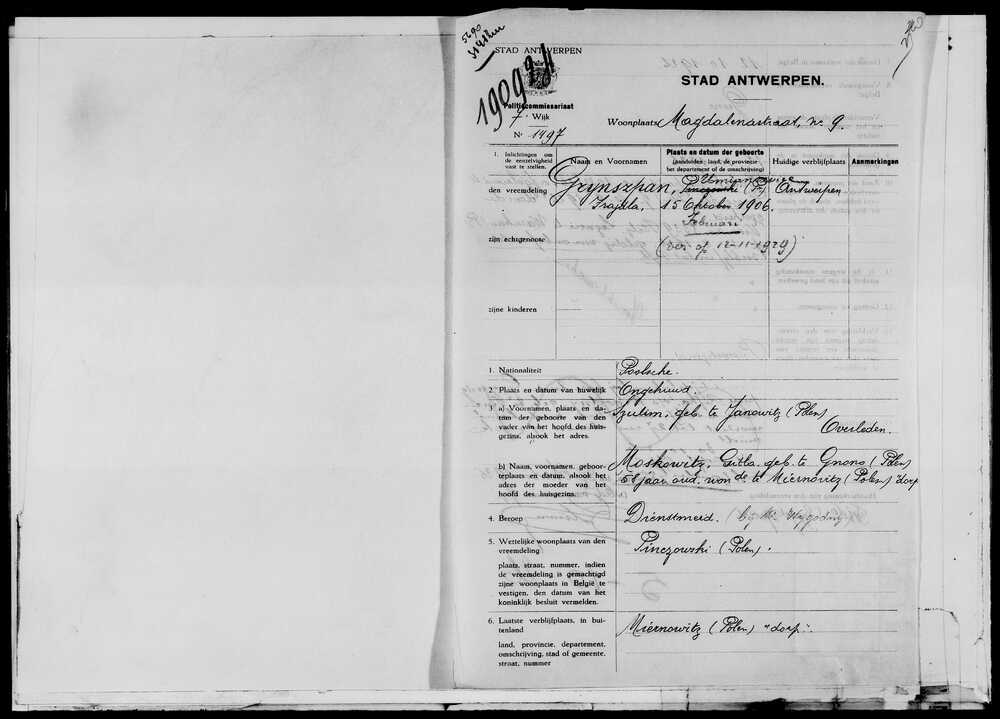 5690
STAD ANTWERPEN
190934
Politiecommissariaat
7e Wijk
Nr 1497
STAD ANTWERPEN.
Woonplaats Magdalenastraat, nr 9.
1. Inlichtingen om de eenzelvigheid vast te stellen.
Naam en Voornamen
Plaats en datum der geboorte
(aanduiden: land, de provincie het departement of de omschrijving)
Huidige verblijfplaats
Aanmerkingen
den vreemdeling
Grynszpan,
Frajdla,
Pinczowski (P.)
15 Oktober 1906.
Februari
Antwerpen
zijn echtgenoote
(ver. op 12-11-1929)
zijne kinderen
1. Nationaliteit
Poolsche.
2. Plaats en datum van huwelijk
Ongehuwd.
3. a) Voornamen, plaats en datum der geboorte van den vader van het hoofd des huisgezins, alsook het adres.
Szulim, geb. te Janowitz (Polen)
Overleden.
b) Naam, voornamen, geboorteplaats en datum, alsook het adres der moeder van het hoofd des huisgezins.
Moskowitz, Gitla, geb. te Gnono (Polen)
58 jaar oud, won.de te Miernowitz (Polen) "dorp
4. Beroep
Dienstmeid. (bij Mr Wygodny
5. Wettelijke woonplaats van den vreemdeling
Pinczowski (Polen).
plaats, straat, nummer, indien de vreemdeling is gemachtigd zijne woonplaats in België te vestigen, den datum van het koninklijk besluit vermelden.
6. Laatste verblijfplaats, in buitenland
Miernowitz (Polen) "dorp".
land, provincie, departement, omschrijving, stad of gemeente, straat, nummer